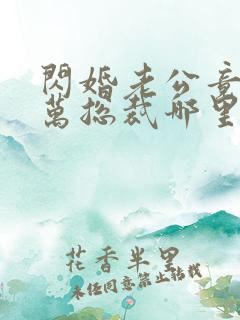 閃婚老公竟
萬總裁哪里
花香半里
未经同意禁止转载